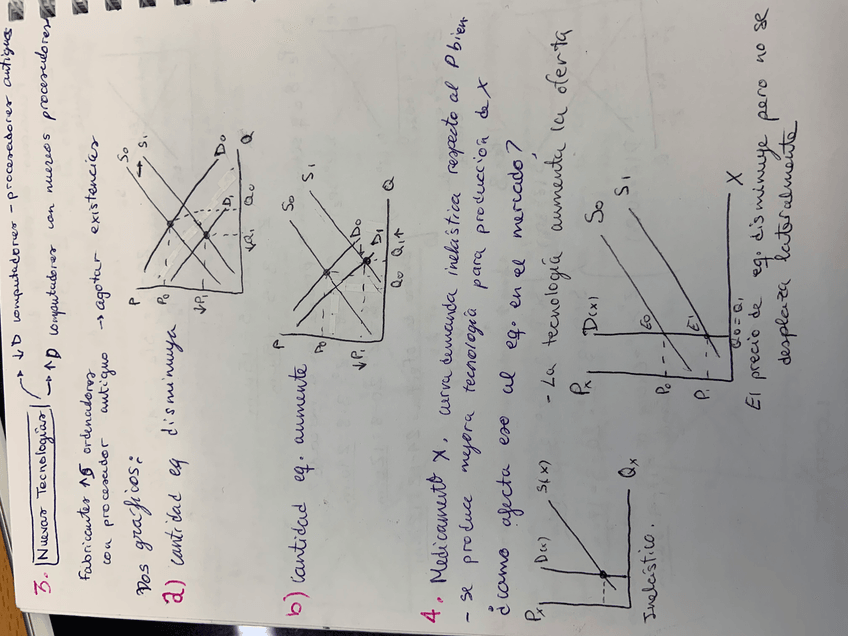 3. Nuevas Tecnologías → ↓D computadores - procesadores antiguos
→ ↑D computadores con nuevos procesadores
Fabricantes ↑O ordenadores
con procesador antiguo → agotar existencias
Dos gráficos:
a) cantidad eq disminuya
P
S0
S1
P0
↓P1
D0
D1
↓Q1
Q0
Q
b) cantidad eq. aumente
P
S0
S1
P0
↓P1
D0
D1
Q0
Q1↑
Q
4. Medicamento X, curva demanda inelástica respecto al P bien
- se produce mejora tecnología para producción de X
¿cómo afecta eso al eq. en el mercado?
Px
D(x)
S(x)
Qx
Inelástico.
- La tecnología aumenta la oferta
Px
D(x)
S0
S1
P0
E0
P1
E1
Q0=Q1
X
El precio de eq. disminuye pero no se
desplaza lateralmente